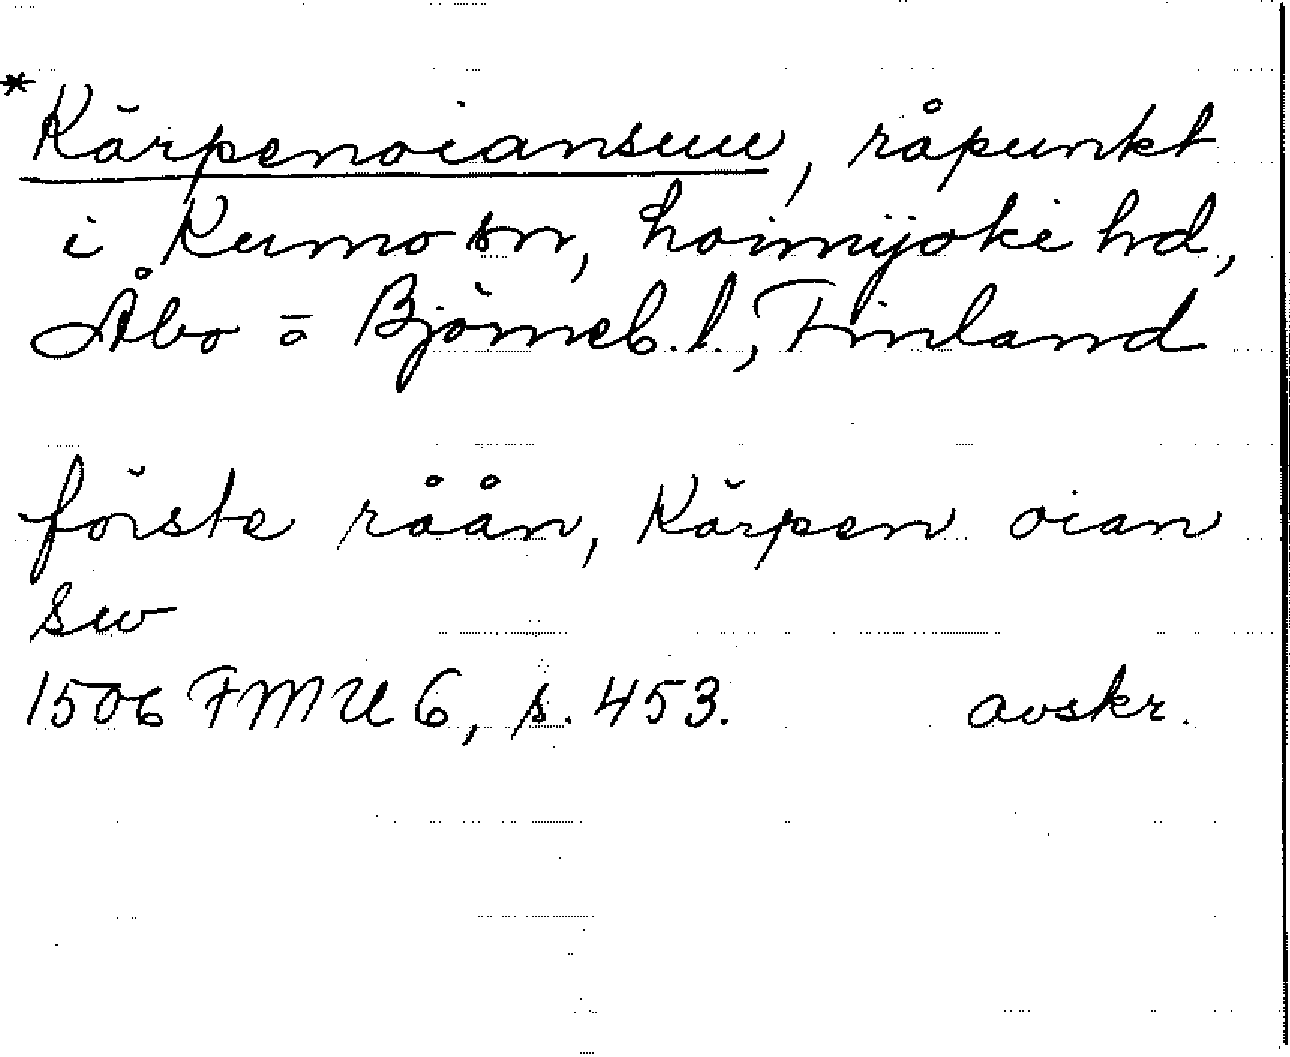 *Kärpenoiansuu, råpunkt
i Kumo sn, Loimijoki hd,
Åbo o Björneb. l., Finland
förste råån, Kärpen oian
sw
1506 FMU 6, s. 453. avskr.